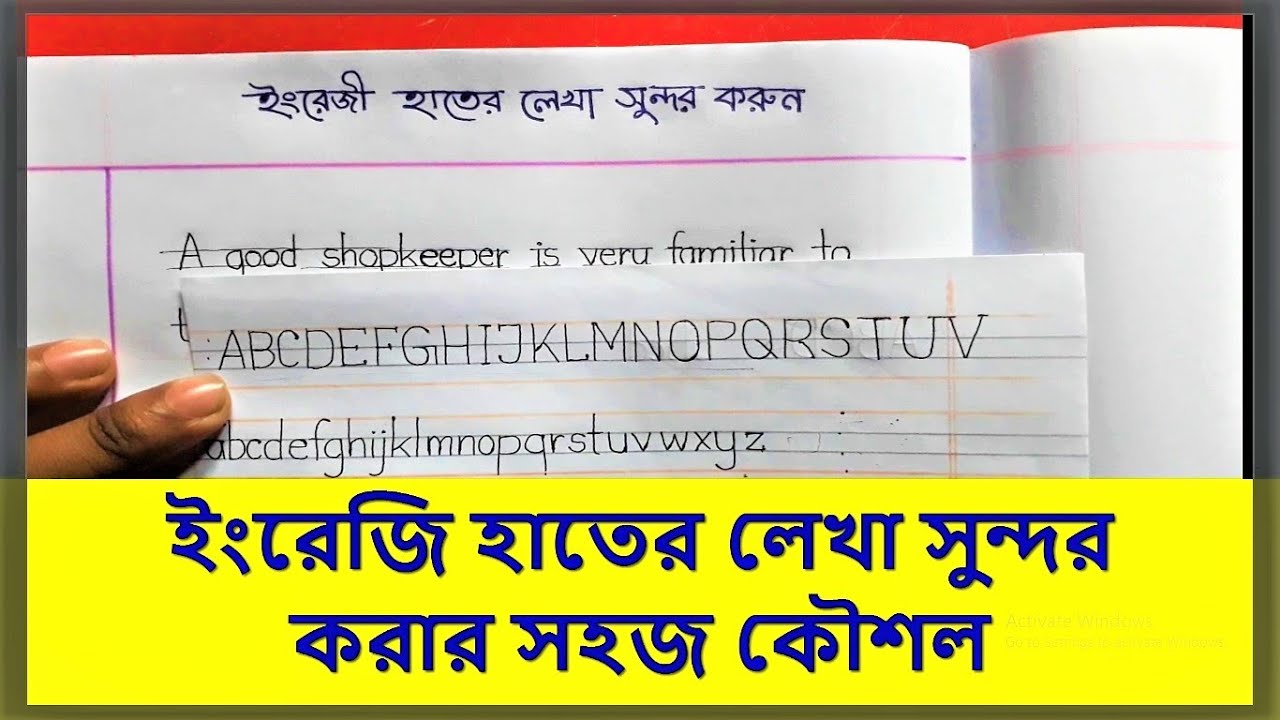 ইংরেজী হাতের লেখা সুন্দর করুন
A good shopkeeper is very familiar to
t
ABCDEFGHIJKLMNOPQRSTUV
abcdefghijklmnopqrstuvwxyz
ইংরেজি হাতের লেখা সুন্দর
করার সহজ কৌশল
Activate Windows
Go to Settings to activate Windows.